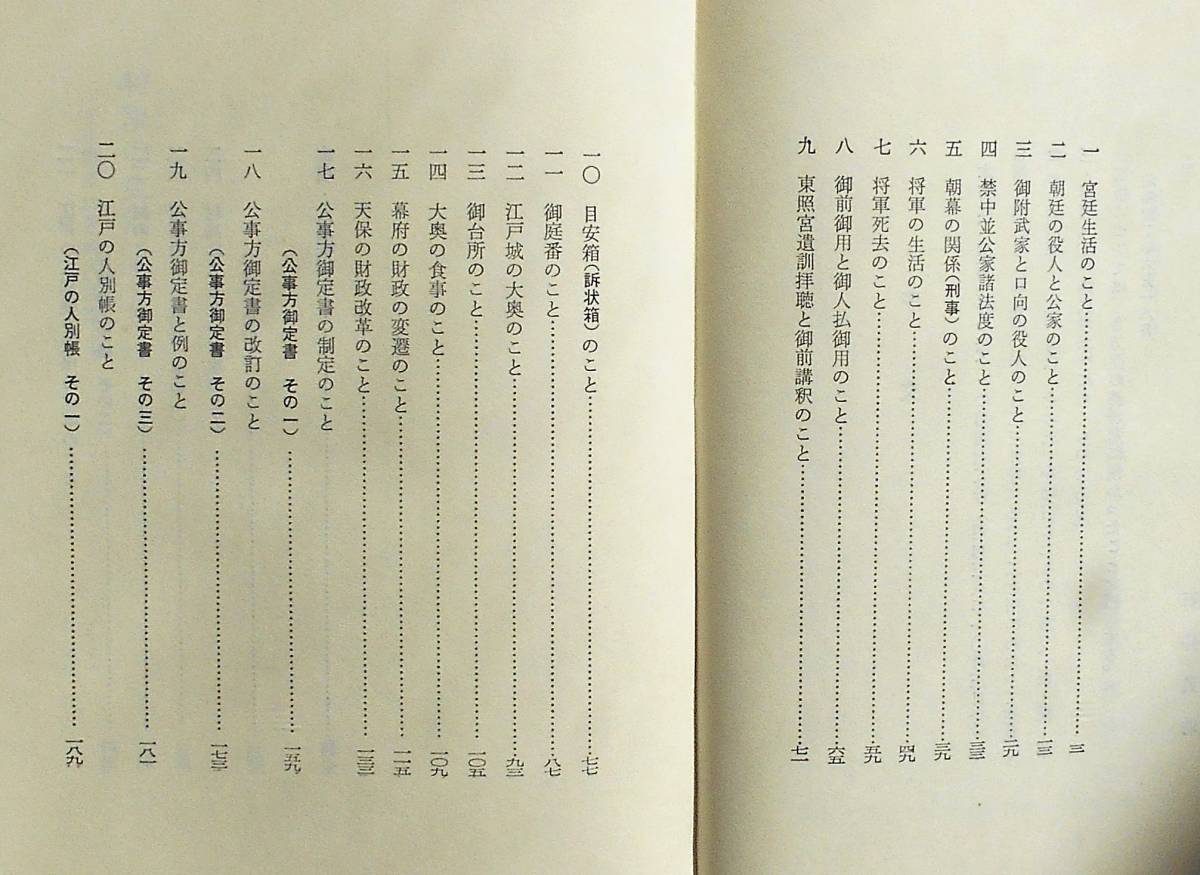 一 宮廷生活のこと…………三
二 朝廷の役人と公家のこと…………一三
三 御附武家と口向の役人のこと…………二九
四 禁中並公家諸法度のこと…………三三
五 朝幕の関係（刑事）のこと…………三九
六 将軍の生活のこと…………四九
七 将軍死去のこと…………五九
八 御前御用と御人払御用のこと…………六五
九 東照宮遺訓拝聴と御前講釈のこと…………七一
一〇 目安箱（訴状箱）のこと…………七七
一一 御庭番のこと…………八七
一二 江戸城の大奥のこと…………九三
一三 御台所のこと…………一〇五
一四 大奥の食事のこと…………一〇九
一五 幕府の財政の変遷のこと…………一一五
一六 天保の財政改革のこと…………一三三
一七 公事方御定書の制定のこと
（公事方御定書 その一）…………一五九
一八 公事方御定書の改訂のこと
（公事方御定書 その二）…………一七三
一九 公事方御定書と例のこと
（公事方御定書 その三）…………一八一
二〇 江戸の人別帳のこと
（江戸の人別帳 その一）…………一八九